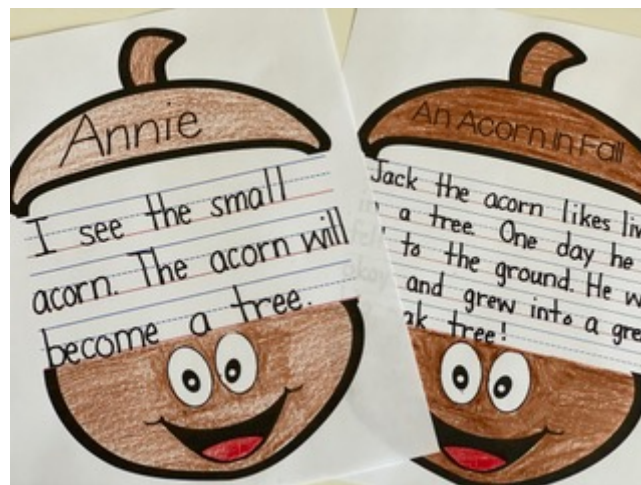 Annie
I see the small
acorn. The acorn will
become a tree.
An Acorn in Fall
Jack the acorn likes
a tree. One day he
to the ground. He
and grew into a
tree!